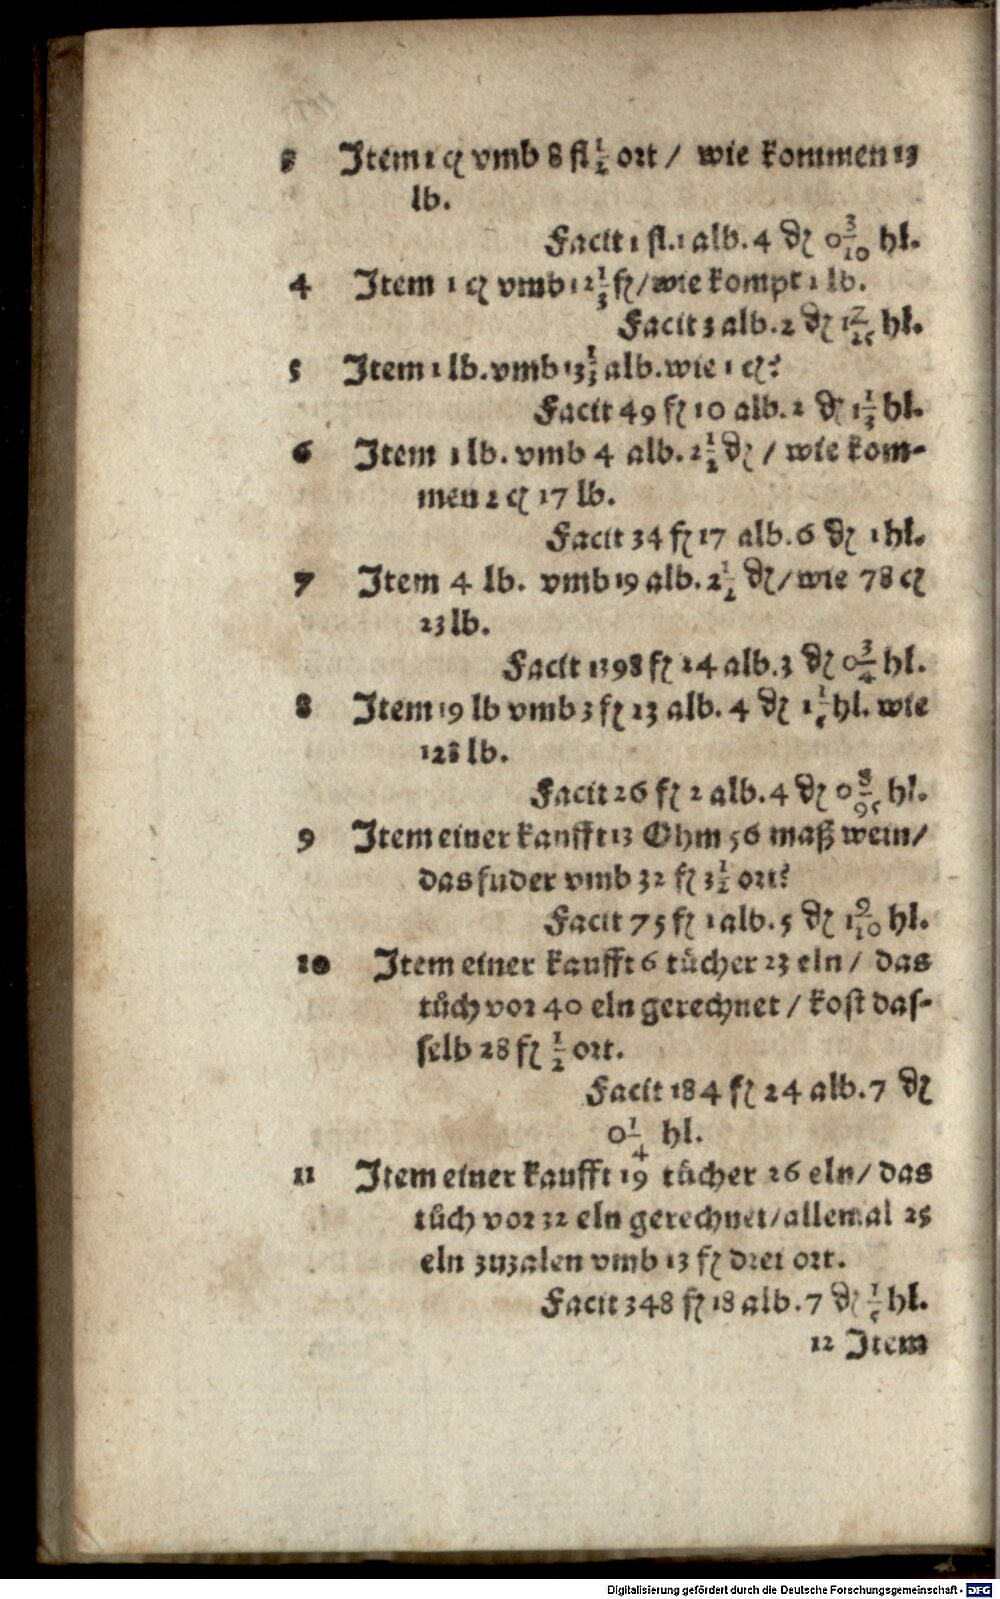 3 Item 1 cₔ vmb 8 fl ½ ort / wie kommen 13
lb.
Facit 1 fl. 1 alb. 4 ₰ 0 3/10 hl.
4 Item 1 cₔ vmb 12 1/3 fl / wie kompt 1 lb.
Facit 3 alb. 2 ₰ 1 7/25 hl.
5 Item 1 lb. vmb 13 1/3 alb. wie 1 cₔ?
Facit 49 fl 10 alb. 2 ₰ 1 1/3 hl.
6 Item 1 lb. vmb 4 alb. 2 ½ ₰ / wie kom-
men 2 cₔ 17 lb.
Facit 34 fl 17 alb. 6 ₰ 1 hl.
7 Item 4 lb. vmb 19 alb. 2 ½ ₰ / wie 78 cₔ
23 lb.
Facit 1398 fl 24 alb. 3 ₰ 0 3/4 hl.
8 Item 19 lb vmb 3 fl 23 alb. 4 ₰ 1 1/5 hl. wie
128 lb.
Facit 26 fl 2 alb. 4 ₰ 0 8/95 hl.
9 Item einer kaufft 13 Ohm 56 maß wein /
das fuder vmb 32 fl 3 ½ ort?
Facit 75 fl 1 alb. 5 ₰ 1 9/10 hl.
10 Item einer kaufft 6 tücher 23 eln / das
tůch vor 40 eln gerechnet / kost das-
selb 28 fl ½ ort.
Facit 184 fl 24 alb. 7 ₰
0 1/4 hl.
11 Item einer kaufft 19 tücher 26 eln / das
tůch vor 32 eln gerechnet / allemal 25
eln zuzalen vmb 13 fl drei ort.
Facit 348 fl 18 alb. 7 ₰ 1/5 hl.
12 Item
Digitalisierung gefördert durch die Deutsche Forschungsgemeinschaft - DFG